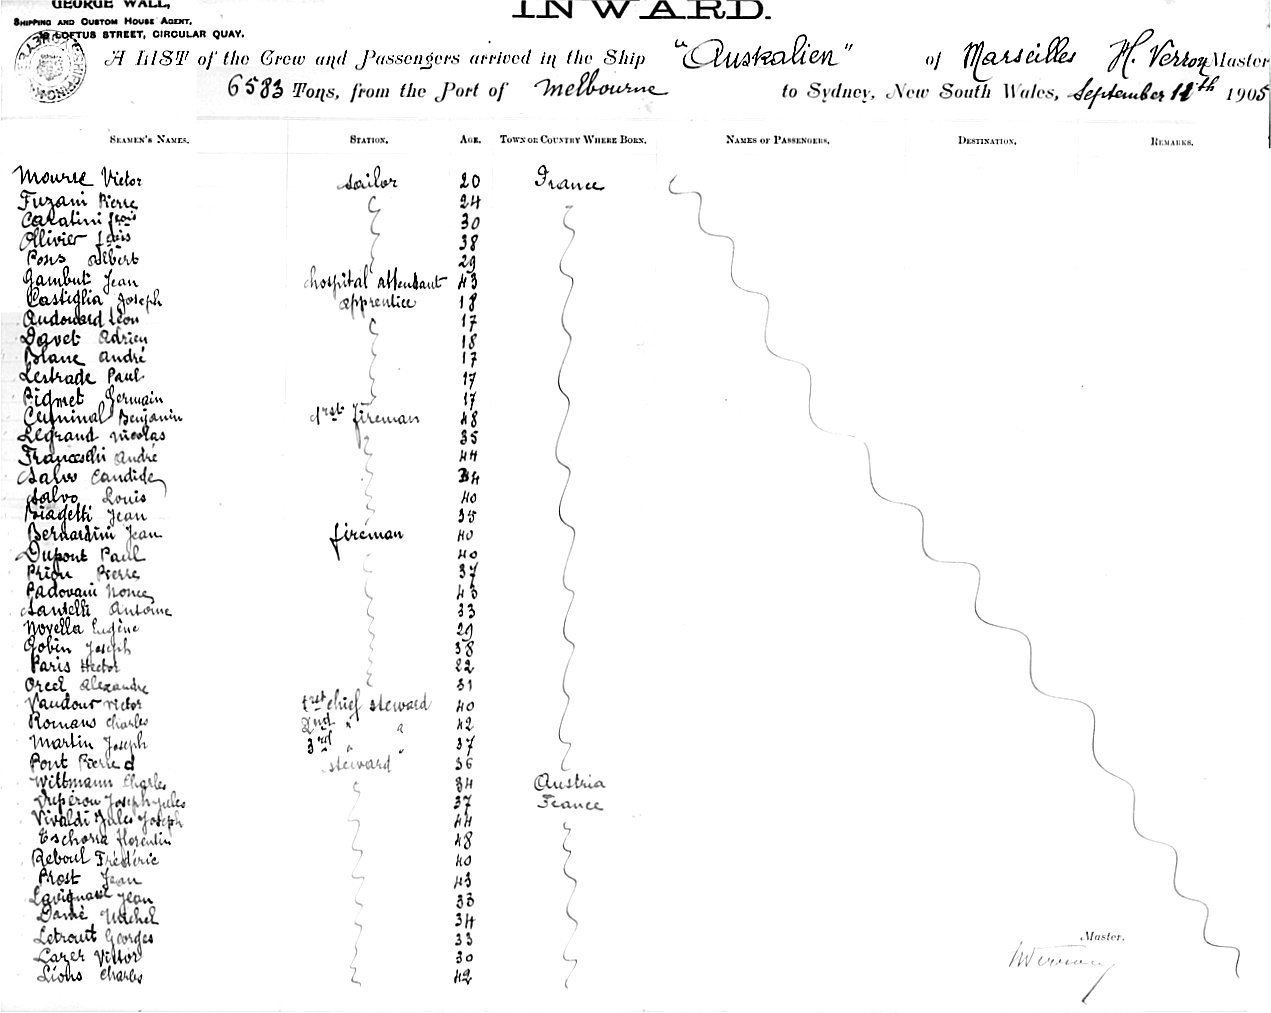 GEORGE WALL,
SHIPPING AND CUSTOM HOUSE AGENT,
LOFTUS STREET, CIRCULAR QUAY.
INWARD.
A LIST of the Crew and Passengers arrived in the Ship "Australien" of Marseilles H. Verron Master
6583 Tons, from the Port of Melbourne to Sydney, New South Wales, September 12th 1905
SEAMEN'S NAMES. STATION. AGE. TOWN OR COUNTRY WHERE BORN. NAMES OF PASSENGERS. DESTINATION. REMARKS.
Mourse Victor sailor 20 France
Fuzani Pierre 24
Caratini frois 30
Ollivier Louis 38
Pons Albert 29
Gambut Jean hospital attendant 43
Castiglia Joseph apprentice 18
Audouard Léon 17
Davet Adrien 18
Blanc André 17
Lestrade Paul 17
Pignet Germain 17
Cuminal Benjamin first fireman 48
Legrand Nicolas 35
Franceschi André 44
Salvo Candide 34
Salvo Louis 40
Biagetti Jean 35
Bernardini Jean fireman 40
Dupont Paul 40
Priou Pierre 37
Padovani Nonce 43
Santelli Antoine 33
Novella Eugène 29
Gobin Joseph 38
Paris Hector 22
Orcel Alexandre 31
Vaudour Victor 1rst chief steward 40
Romans Charles 2nd " " 42
Martin Joseph 3rd " " 37
Pont Pierre d steward 36
Wittmann Charles 34 Austria
Dupérou Joseph Jules 37 France
Vivaldi Jules Joseph 44
Eschorra florentin 48
Reboul Frédéric 40
Prost Jean 43
Lavignasse Jean 33
Damé Michel 34
Letrouit Georges 33
Larer Victor 30
Lions Charles 42
Master.
HVerron